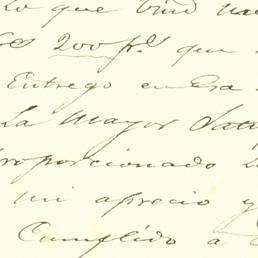 lo que
200 frs que
Entrego en esa
La mayor
proporcionado
mi aprecio y
Cumplido a